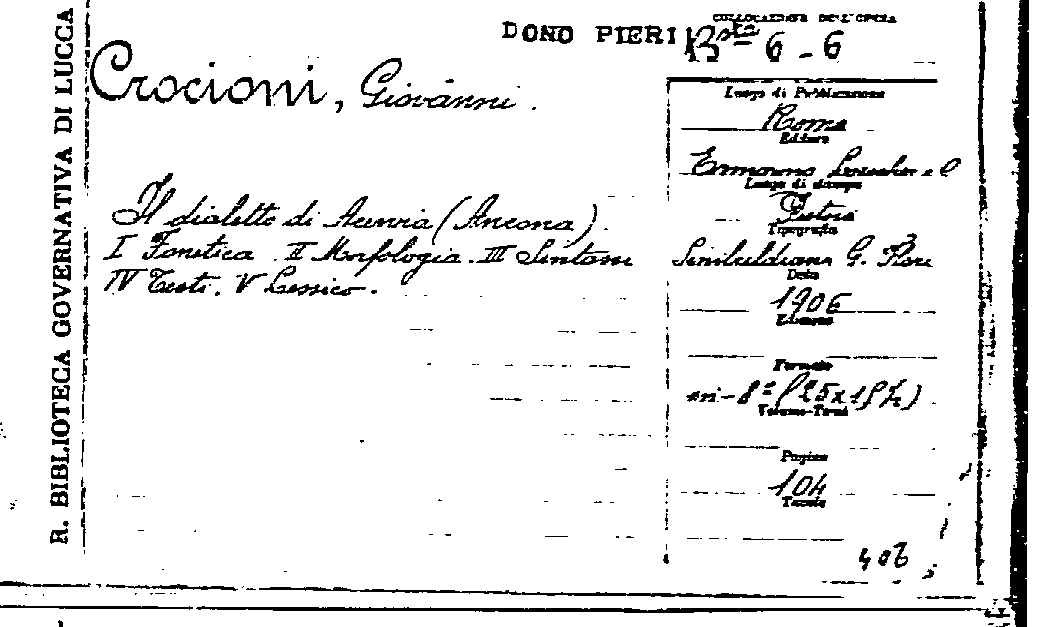 R. BIBLIOTECA GOVERNATIVA DI LUCCA
DONO PIERI
COLLOCAZIONE DELL'OPERA
Bsta 6 - 6
Crocioni, Giovanni.
Il dialetto di Arcevia (Ancona).
I Fonetica. II Morfologia. III Sintassi
IV Testi. V Lessico.
Luogo di Pubblicazione
Roma
Editore
Ermanno Loescher e C
Luogo di stampa
Pistoia
Tipografia
Sinibuldiana G. Flori
Data
1906
Edizione
Formato
in-8º (25x17½)
Volume-Tomo
Pagine
104
Tavole
406